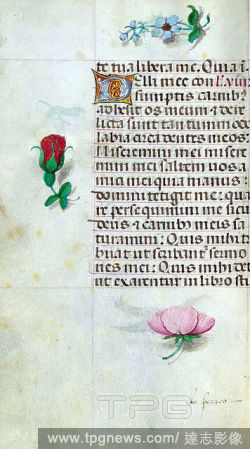 te tua libera me. Quia i.
Elli mee con
sumptis carnibꝰ
adhesit os meum ⁊ dere
licta sunt tantummodo
labia circa dentes meos
Miseremini mei misere
mini mei saltem vos a
mici mei quia manus
domini tetigit me: qua
re persequimini me sicut
deus ⁊ carnibꝰ meis sa
turamini: Quis mihi tri
buat ut scribantur sermo
nes mei: Quis mihi det
ut exarentur in libro sti
TPG
www.tpgnews.com / 達志影像